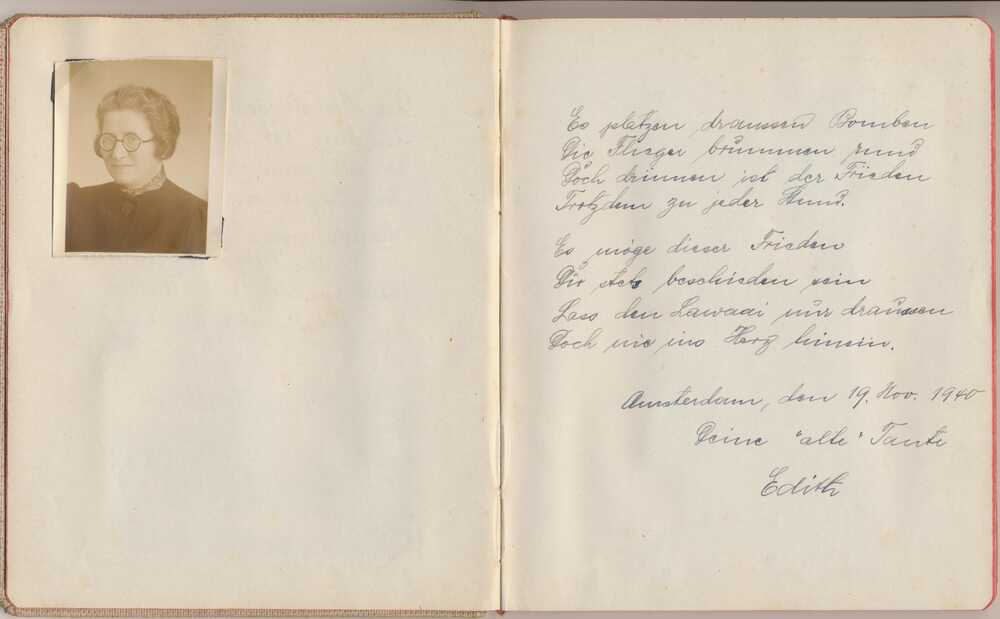 Es platzen draussen Bomben
Die Flieger brummen rund
Doch drinnen ist der Frieden
Trotzdem zu jeder Stund.
Es möge dieser Frieden
Dir stets beschieden sein
Lass den Lawaai nur draussen
Doch nie ins Herz hinein.
Amsterdam, den 19. Nov. 1940
Deine "alte" Tante
Edith